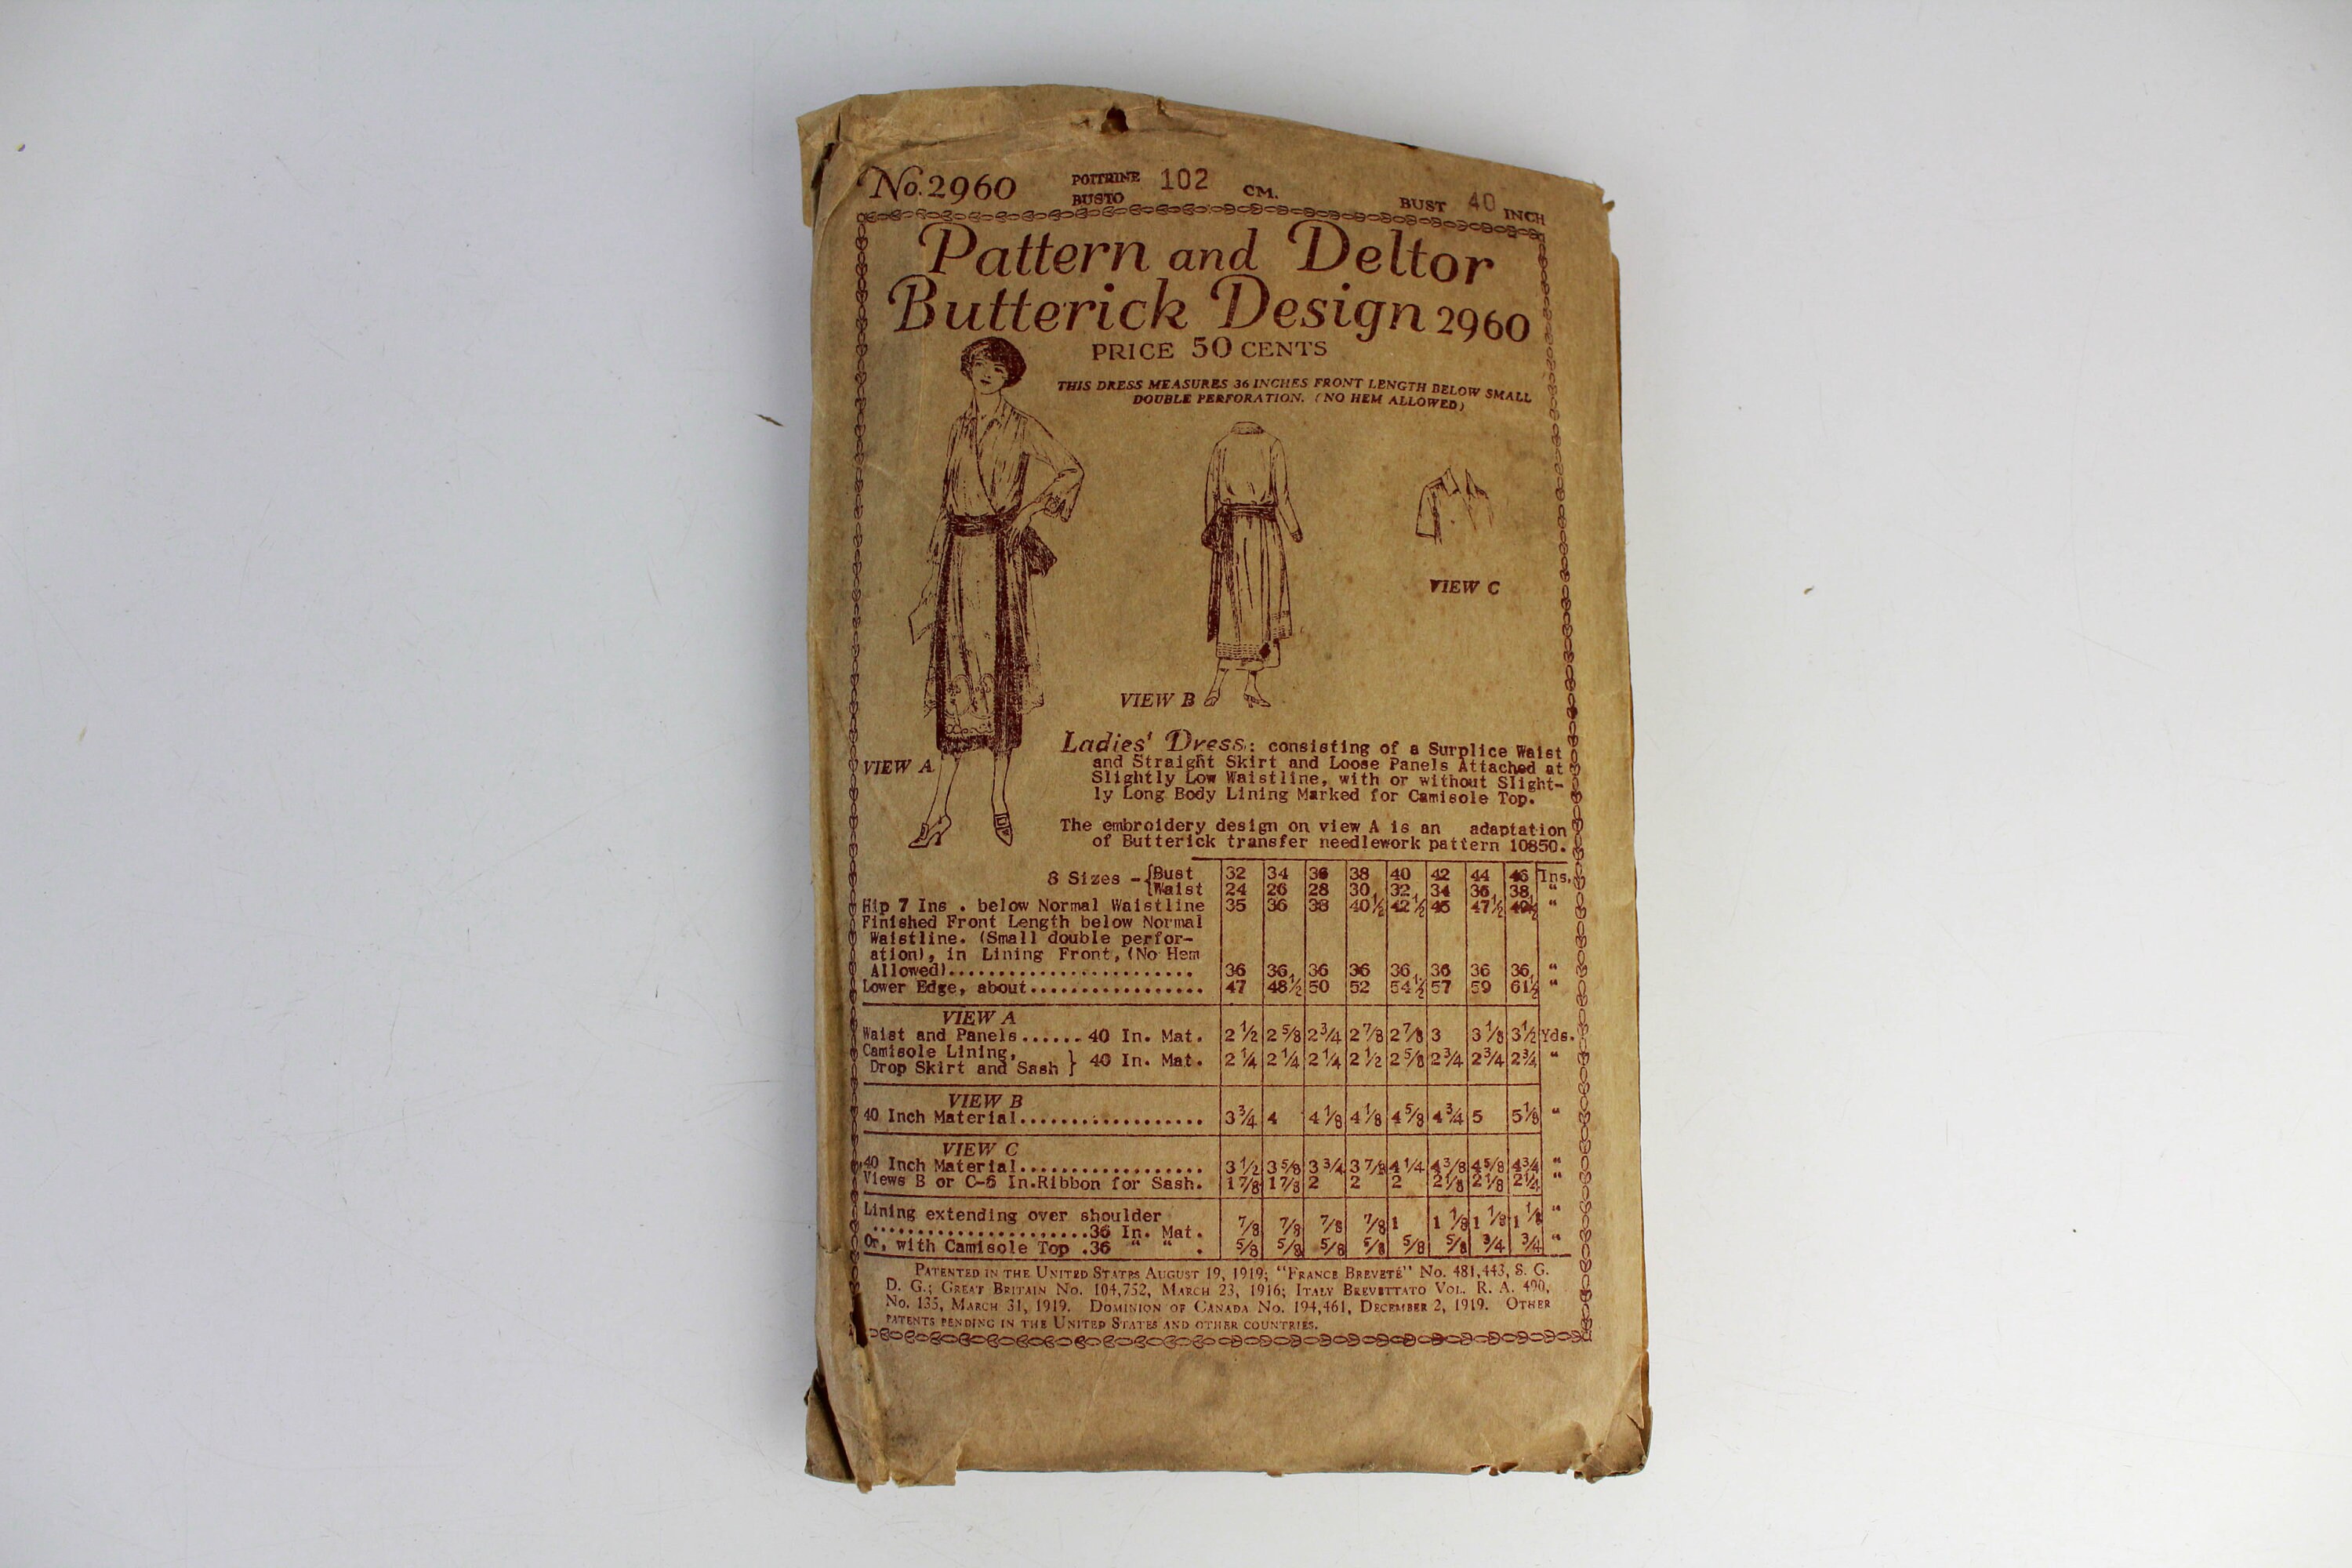 No. 2960 POITRINE BUSTO 102 CM. BUST 40 INCH
Pattern and Deltor
Butterick Design 2960
PRICE 50 CENTS
THIS DRESS MEASURES 36 INCHES FRONT LENGTH BELOW SMALL
DOUBLE PERFORATION. (NO HEM ALLOWED)
VIEW C
VIEW B
VIEW A
Ladies' Dress: consisting of a Surplice Waist
and Straight Skirt and Loose Panels Attached at
Slightly Low Waistline, with or without Slight-
ly Long Body Lining Marked for Camisole Top.
The embroidery design on view A is an adaptation
of Butterick transfer needlework pattern 10850.
8 Sizes - {Bust 32 34 36 38 40 42 44 46 Ins.
{Waist 24 26 28 30 32 34 36 38 "
Hip 7 Ins. below Normal Waistline 35 36 38 40½ 42½ 45 47½ 49½ "
Finished Front Length below Normal
Waistline. (Small double perfor-
ation), in Lining Front, (No Hem
Allowed)........................ 36 36 36 36 36 36 36 36 "
Lower Edge, about................. 47 48½ 50 52 54½ 57 59 61½ "
VIEW A
Waist and Panels...... 40 In. Mat. 2½ 2⅝ 2¾ 2⅞ 2⅞ 3 3⅛ 3½ Yds.
Camisole Lining,
Drop Skirt and Sash } 40 In. Mat. 2¼ 2¼ 2¼ 2½ 2⅝ 2¾ 2¾ 2¾ "
VIEW B
40 Inch Material.................. 3¾ 4 4⅛ 4⅛ 4⅝ 4¾ 5 5⅛ "
VIEW C
40 Inch Material.................. 3½ 3⅝ 3¾ 3⅞ 4¼ 4⅜ 4⅝ 4¾ "
Views B or C-6 In. Ribbon for Sash. 1⅞ 1⅞ 2 2 2 2⅛ 2⅛ 2¼ "
Lining extending over shoulder
.....................36 In. Mat. ⅞ ⅞ ⅞ ⅞ 1 1⅛ 1⅛ 1⅛ "
Or, with Camisole Top .36 " " . ⅝ ⅝ ⅝ ⅝ ⅝ ⅝ ¾ ¾ "
PATENTED IN THE UNITED STATES AUGUST 19, 1919; "FRANCE BREVETÉ" No. 481,443, S. G.
D. G.; GREAT BRITAIN No. 104,752, MARCH 23, 1916; ITALY BREVETTATO VOL. R. A. 490,
No. 135, MARCH 31, 1919. DOMINION OF CANADA No. 194,461, DECEMBER 2, 1919. OTHER
PATENTS PENDING IN THE UNITED STATES AND OTHER COUNTRIES.